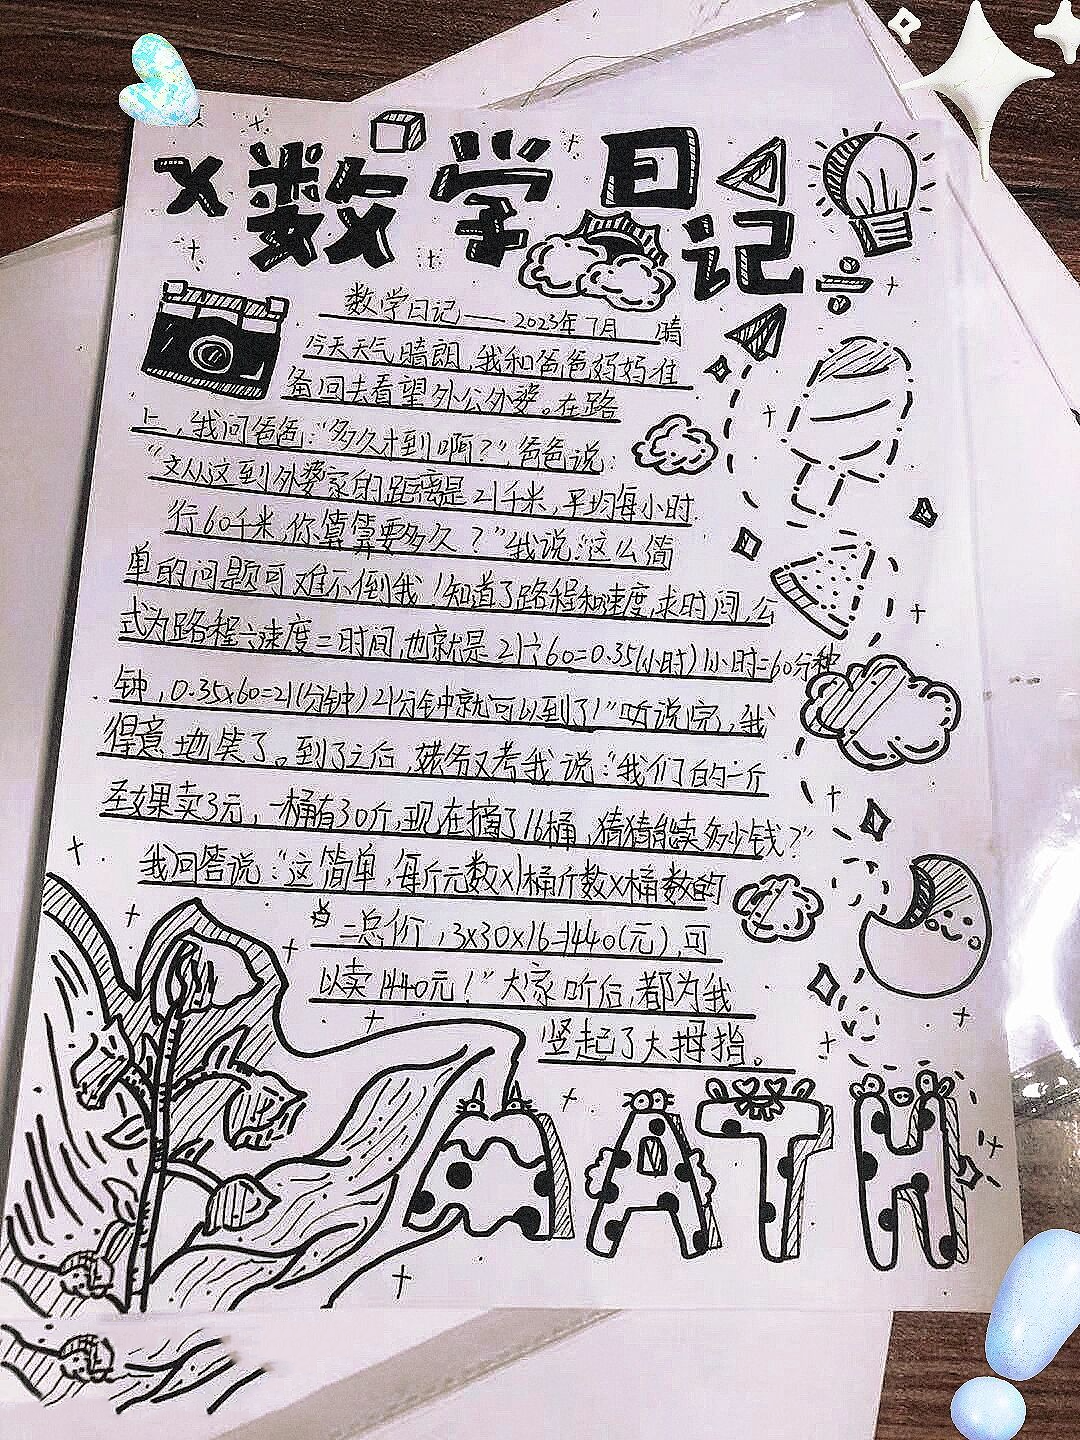 数学日记
数学日记——2023年7月 晴
今天天气晴朗,我和爸爸妈妈准
备回去看望外公外婆。在路
上,我问爸爸:“多久才到啊?”,爸爸说:
“从这到外婆家的距离是21千米,平均每小时
行60千米,你算算要多久?”我说:“这么简
单的问题可难不倒我!知道了路程和速度,求时间,公
式为路程÷速度=时间,也就是21÷60=0.35(小时)1小时=60分种
钟,0.35x60=21(分钟)21分钟就可以到了!”听说完,我
得意地笑了。到了之后,姥爷又考我说:“我们的一斤
果卖3元,一桶有30斤,现在摘了16桶,猜猜能卖多少钱?”
我回答说:“这简单,每斤元数x1桶斤数x桶数的
=总价,3x30x16=1440(元),可
以卖1440元!”大家听后,都为我
竖起了大拇指。
MATH